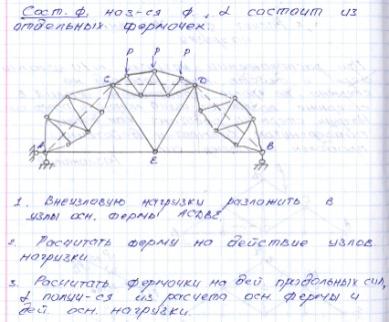 Сост. ф. наз-ся ф, α состоит из
отдельных фермочек.
P P P
C D
A E B
1. Внеузловую нагрузки разложить в
узлы осн. фермы ACDBE.
2. Расчитать ферму на действие узлов.
нагрузки.
3. Расчитать фермочки на дей продольных сил,
α получ-ся из расчета осн. фермы и
дей осн. нагрузки.